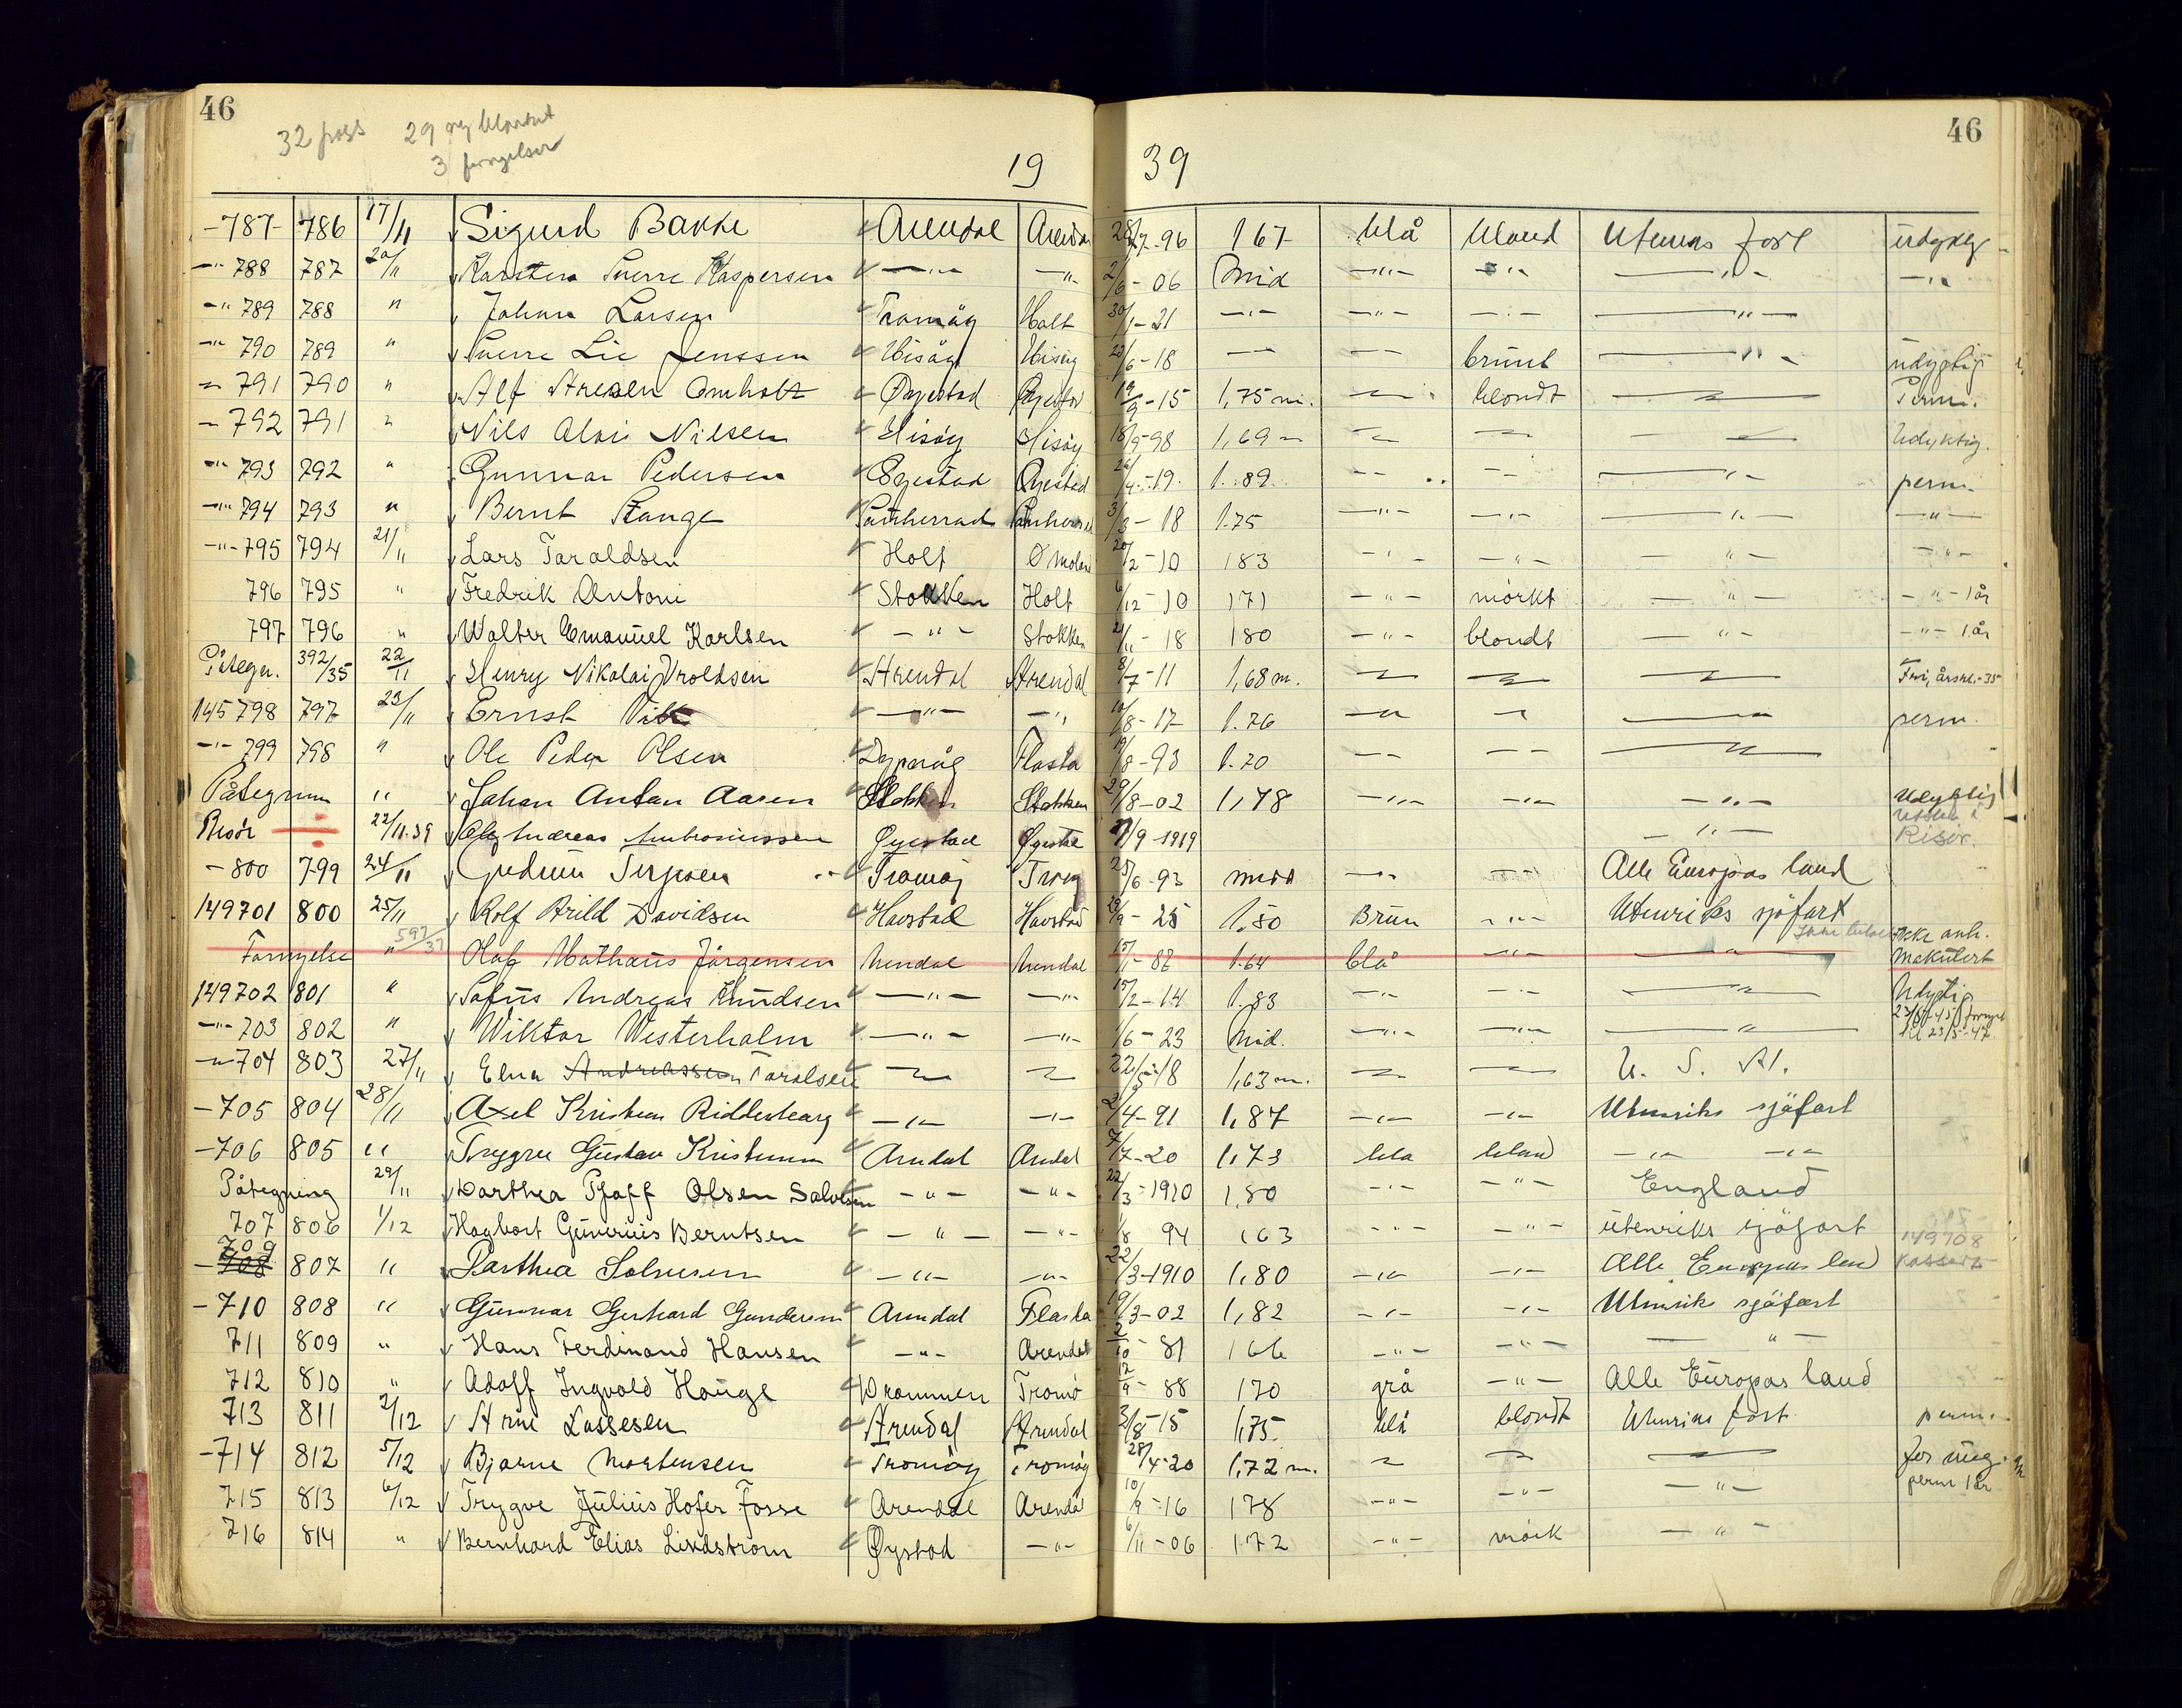 46 46
32 pass 29 ny blankt
3 fornyelser
19 39
-787- 786 17/11 Sigurd Bakke Arendal Arendal 28/7-96 167 blå blond Utenriks fart udyktig
-"- 788 787 20/11 Karsten Sverre Kaspersen -"- -"- 2/6-06 Mid -"- -"- -"- -"-
-"- 789 788 " Johan Larsen Tromøy Holt 30/1-21 -"- -"- -"- -"-
-"- 790 789 " Sverre Lie Jenssen Hisøy Hisøy /6-18 -"- -"- brunt -"- udyktig
-"- 791 790 " Alf Amholt Øyestad Øyestad 19/9-15 1,75 m. -"- blondt -"- Perm.
-"- 792 791 " Nils Nilsen Hisøy Hisøy 18/9-98 1,69 m -"- -"- -"- Udyktig.
-"- 793 792 " Gunnar Pedersen Øyestad Øyestad 26/4-19. 1.89. -"- -"- -"- perm.
-"- 794 793 " Bernt Stange 3/3-18 1.75 -"- -"- -"- -"-
-"- 795 794 21/11 Lars Taraldsen Holt Ø Moland 20/2-10 183 -"- -"- -"- -"-
796 795 " Fredrik Antoni Stokken Holt 6/12-10 171 -"- mörkt -"- -"- 1 år
797 796 " Walter Emanuel Karlsen -"- Stokken 21/11-18 180 -"- blondt -"- -"- 1 år
Påtegn. 392/35 22/11 Henry Nikolai Vroldsen Arendal Arendal 8/7-11 1,68 m. -"- -"- -"- Fri, årskl.-35
145798 797 23/11 Ernst Vik -"- -"- 10/8-17 1.76 -"- -"- -"- perm.
-"- 799 798 " Ole Peder Olsen Dypvåg Flosta 19/8-93 1.70 -"- -"- -"-
Påtegning " Johan Anton Aasen Stokken Stokken 29/8-02 1,78 -"- -"- -"- Udyktig
Risör 22/11.39 Andreas Ambrosiussen Øyestad Øyestad 7/9-1919 -"- Risör.
-800 799 24/11 Gudrun Terjesen Tromøy Tromøy 25/6-93 midd -"- -"- Alle Europas land
149701 800 25/11 Rolf Arild Davidsen Havstad Havstad 29/9-25 1.50 Brun -"- Utenriks sjöfart
Fornyelse 597/37 " Olaf Mathæus Jörgensen Arendal Arendal 15/1-82 1.64 blå -"- -"- Ikke anh. Makulert
149702 801 " Sofus Andreas Knudsen -"- -"- 15/2-14 1.83 -"- -"- -"- Udyktig
-"- 703 802 " Wiktor Westerholm -"- -"- 1/6-23 Mid. -"- -"- -"- 23/5-45 fornyet til 23/5-47
-"- 704 803 27/11 Elna Andreassen Taralsen -"- -"- 22/5-18 1,63 m. -"- -"- U. S. A.
-705 804 28/11 Axel Kristian Ridderberg -"- -"- 2/4-91 1,87 -"- -"- Utenriks sjöfart
-706 805 " Trygve Gustav Kristensen Arendal Arendal 7/7-20 1,73 blå blond -"- -"-
Påtegning 29/11 Dorthea Pfaff Olsen Salvesen -"- -"- 22/3-1910 1,80 -"- -"- England
707 806 1/12 Hagbart Gunerius Berntsen -"- -"- 1/8 94 163 -"- -"- utenriks sjöfart
709 -708 807 " Dorthea Solvesen -"- -"- 22/3-1910 1,80 -"- -"- Alle Europas land 149708 kassert
-710 808 " Gunnar Gerhard Gundersen Arendal Flosta 19/3-02 1,82 -"- -"- Utenriks sjöfart
711 809 " Hans Ferdinand Hansen -"- Arendal 2/10-81 166 -"- -"- -"-
712 810 " Adolf Ingvald Hauge Drammen Tromö 12/9-88 170 grå -"- Alle Europas land
713 811 2/12 Arne Lassesen Arendal Arendal 3/8-15 1,75. blå blondt Utenriks fart perm.
-714 812 5/12 Bjarne Mortensen Tromöy Tromöy 28/4-20 1,72 m. -"- -"- -"- for ung.
715 813 6/12 Trygve Julius Hofer Fosse Arendal Arendal 10/9-16 178 -"- -"- -"- perm 1 år
716 814 " Bernhard Elias Lindström Øystad -"- 6/11-06 172 -"- mörk -"-